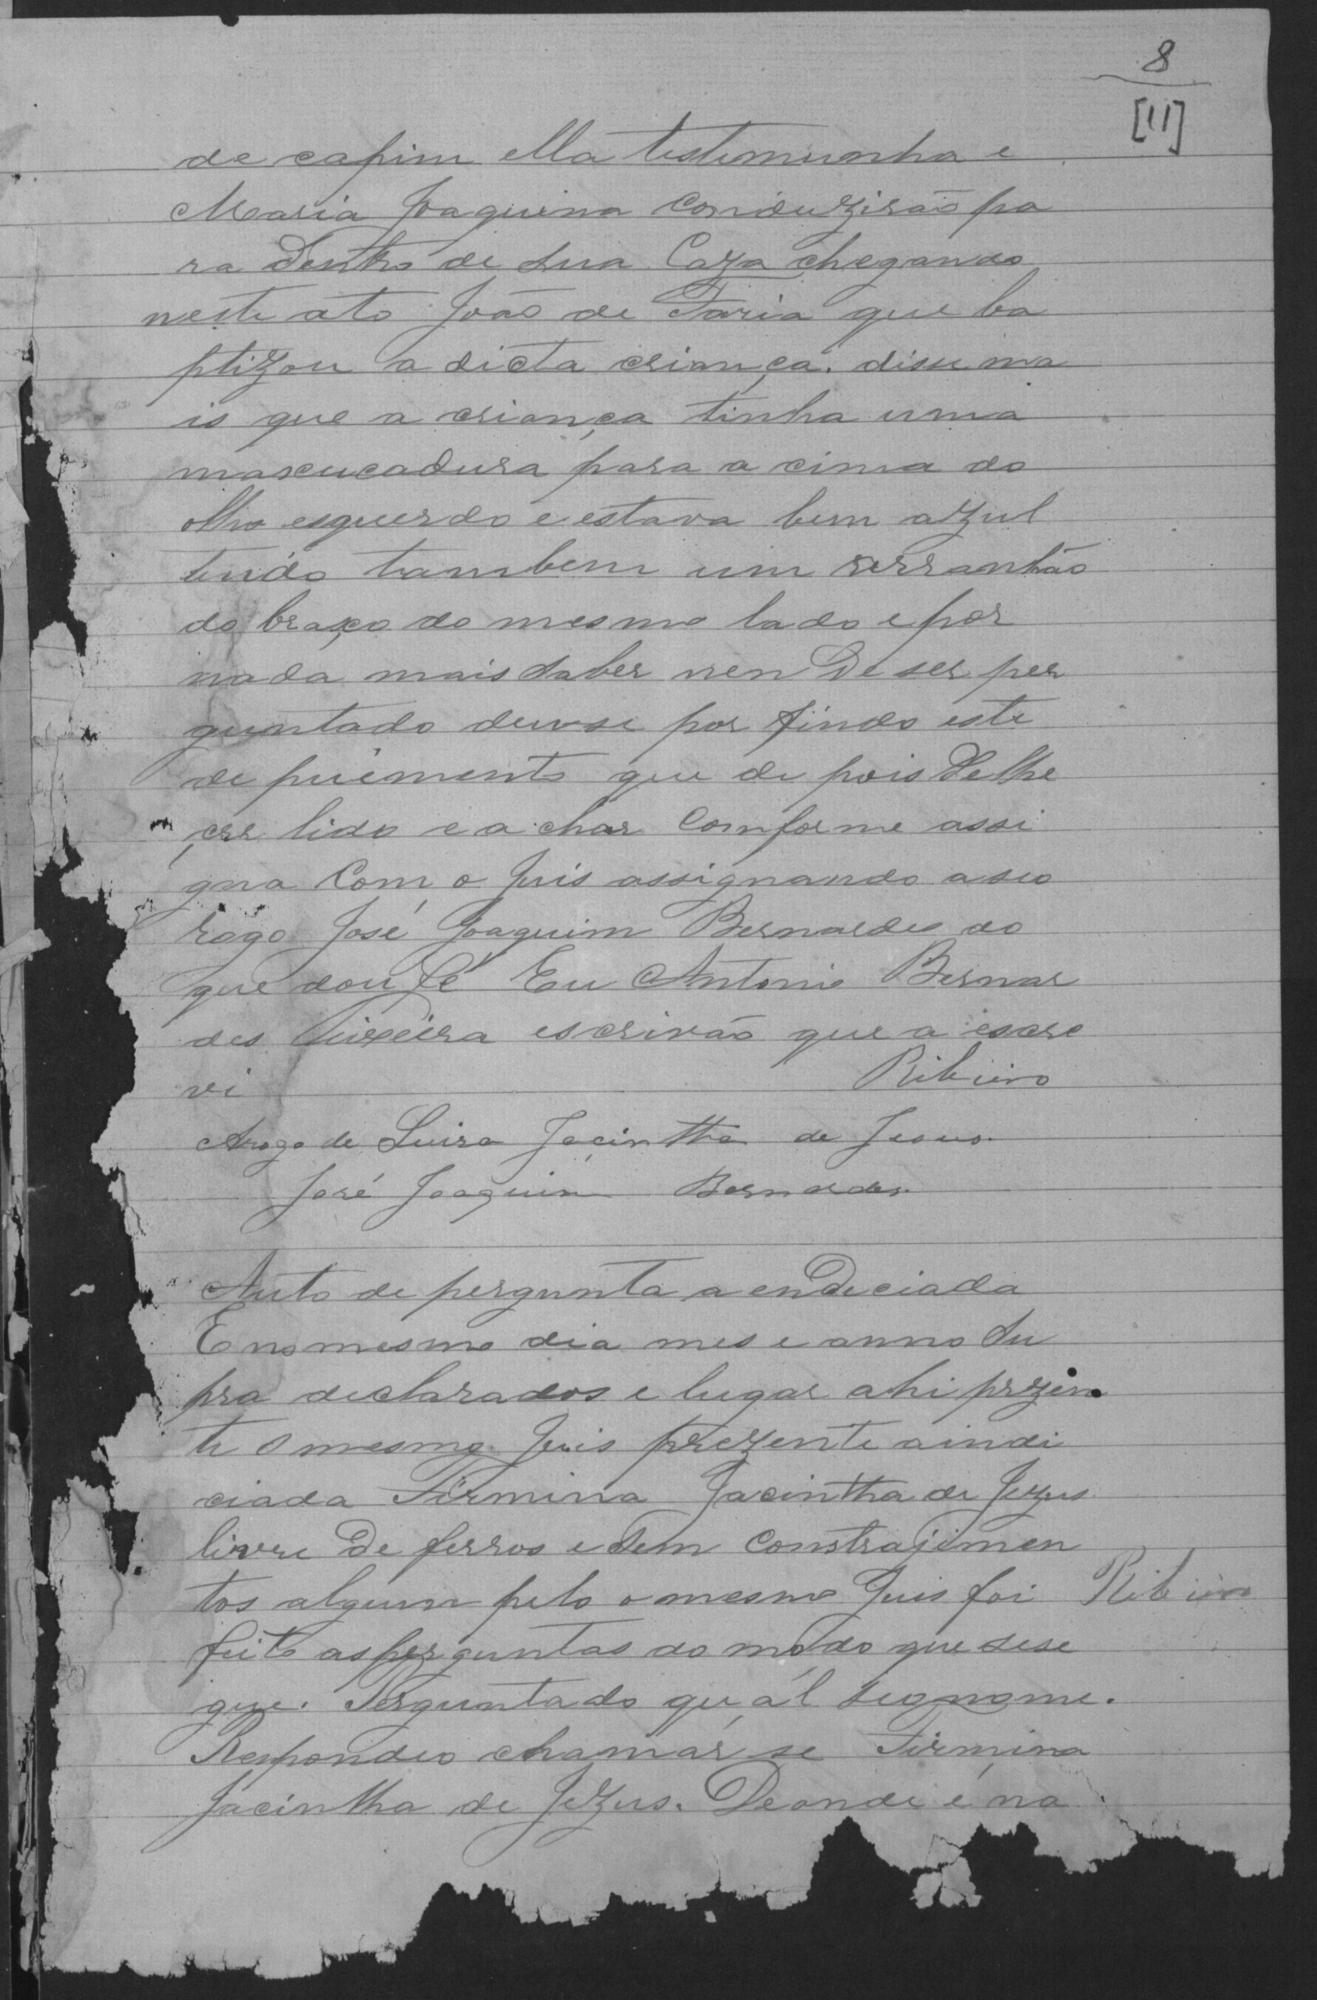 8
[11]
de capim ella testemunha e
Maria Joaquina conduzirão pa
ra dentro de sua Caza chegando
neste ato João de Faria que ba
ptizou a dicta criança. disse ma
is que a criança tinha uma
maxucadura para a cima do
olho esquerdo e estava bem azul
tendo tambem um rerranhão
do braço do mesmo lado e por
nada mais saber nen de ser per
guntado deu-se por findo este
de puimento que de pois de lhe
cer lido e a char comforme assi
gna Com o Juis assignando a seo
rogo José Joaquim Bernardes do
que dou fé Eu Antonio Bernar
des Teixeira escrivão que a escre
vi Ribeiro
Arogo de Luiza Jacintha de Jesus.
José Joaquim Bernardes.
Auto de pergunta a endeciada
E no mesmo dia mes e anno su
pra declarados e lugar ahi przen
te o mesmo Juis prezente a indi
ciada Firmina Jacintha de Jezus
livre de ferros e sem constrajimen
tos algum pelo o mesmo Juis foi Ribeiro
feito as perguntas do modo que sese
gue. Perguntado qual seo nome.
Respondeo chamar se Firmina
Jacintha de Jezus. De onde é na